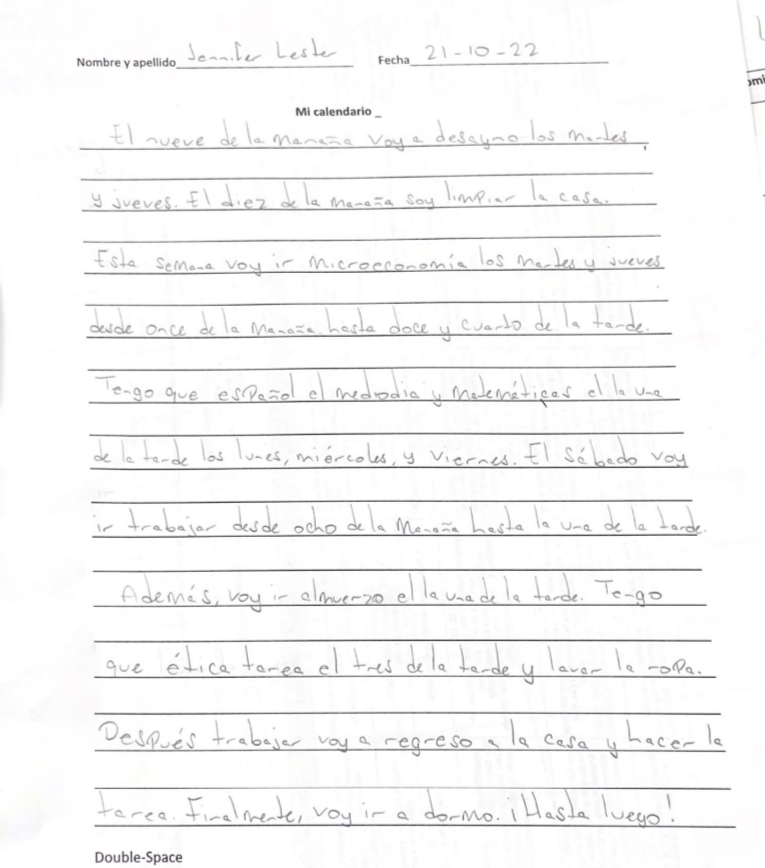 Nombre y apellido Jennifer Lester Fecha 21-10-22
Mi calendario _
El nueve de la manaña voy a desayno los martes,
y jueves. El diez de la manaña soy limpiar la casa.
Esta semana voy ir microeconomía los martes y jueves
desde once de la manaña hasta doce y cuarto de la tarde.
Tengo que español el mediodia y matemáticas el la una
de la tarde los lunes, miércoles, y viernes. El sábado voy
ir trabajar desde ocho de la manaña hasta la una de la tarde.
Además, voy ir almuerzo el la una de la tarde. Tengo
que ética tarea el tres de la tarde y lavar la ropa.
Después trabajar voy a regreso a la casa y hacer la
tarea. Finalmente, voy ir a dormo. ¡Hasta luego!
Double-Space